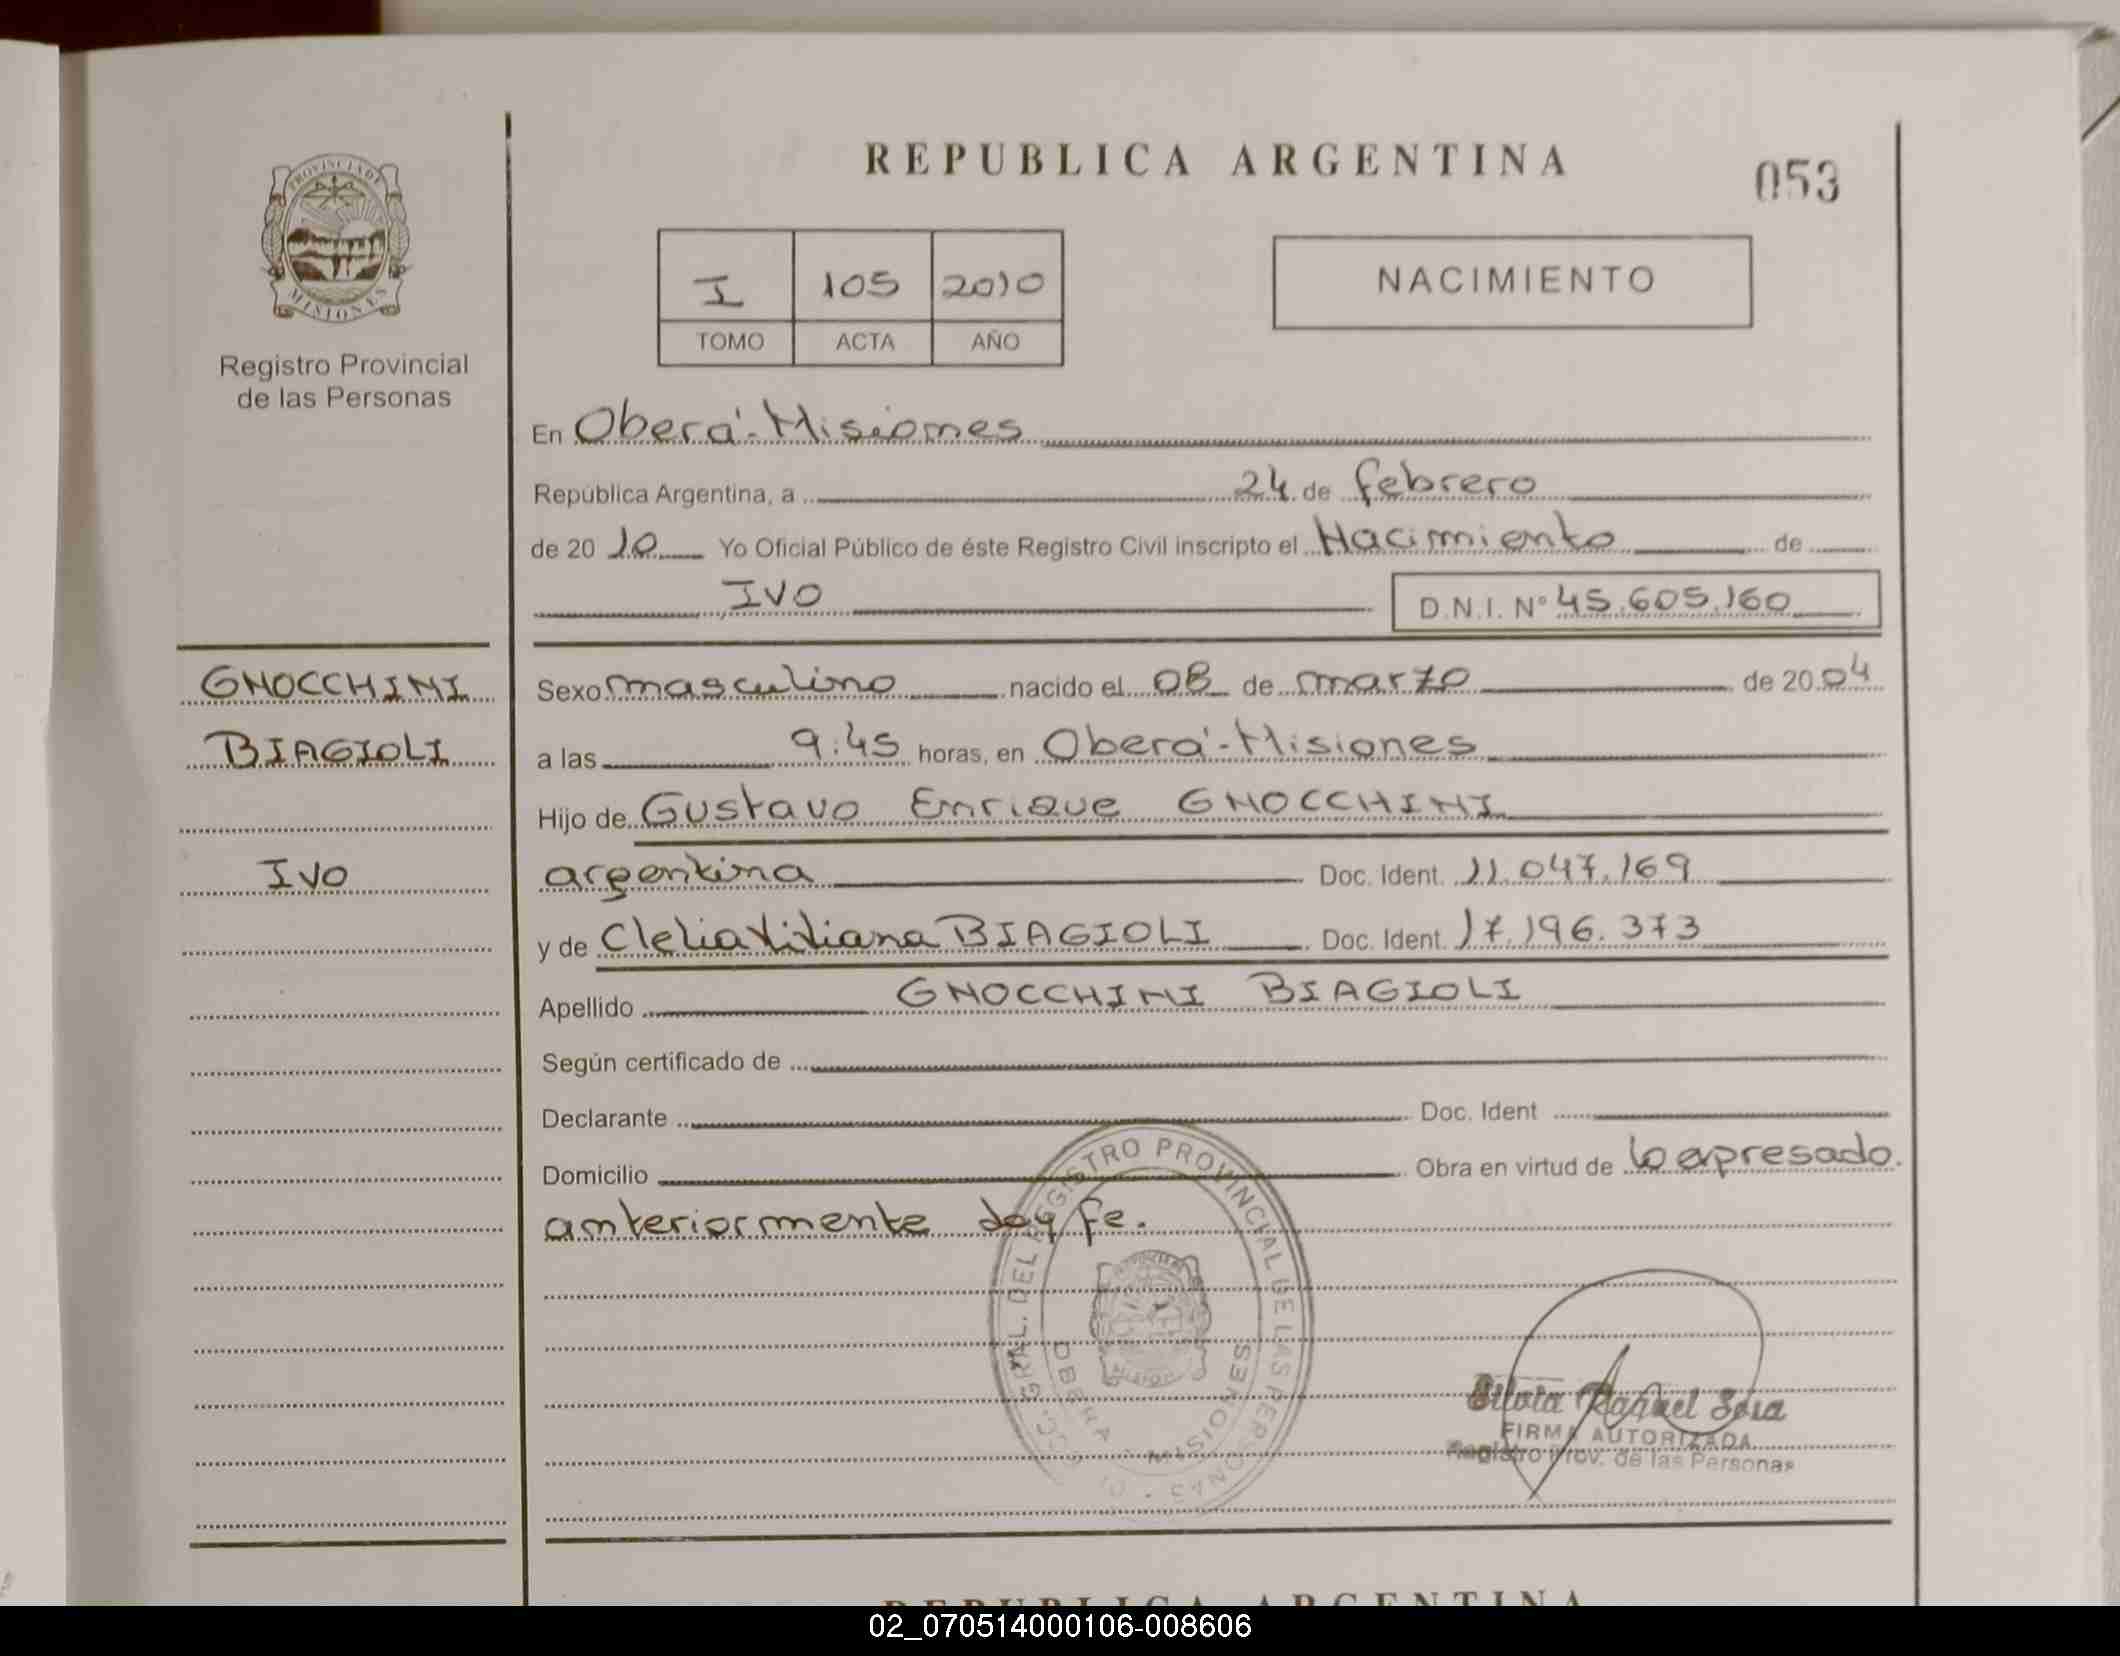 REPUBLICA ARGENTINA
053
PROVINCIA DE
MISIONES
Registro Provincial
de las Personas
I 105 2010
TOMO ACTA AÑO
NACIMIENTO
En Oberá-Misiones
República Argentina, a 24 de febrero
de 20 10 Yo Oficial Público de éste Registro Civil inscripto el Nacimiento de
IVO D.N.I. Nº 45.605.160
GNOCCHINI
BIAGIOLI
IVO
Sexo masculino nacido el 08 de marzo de 20 04
a las 9:45 horas, en Oberá-Misiones
Hijo de Gustavo Enrique GNOCCHINI
argentina Doc. Ident. 11.047.169
y de Clelia Viviana BIAGIOLI Doc. Ident. 17.196.373
Apellido GNOCCHINI BIAGIOLI
Según certificado de
Declarante Doc. Ident
Domicilio Obra en virtud de lo expresado
anteriormente doy fe.
GRAL. DEL REGISTRO PROVINCIAL DE LAS PERSONAS
OBERA - MISIONES
Silvia Raquel Sosa
FIRMA AUTORIZADA
Registro Prov. de las Personas
REPUBLICA ARGENTINA
02_070514000106-008606